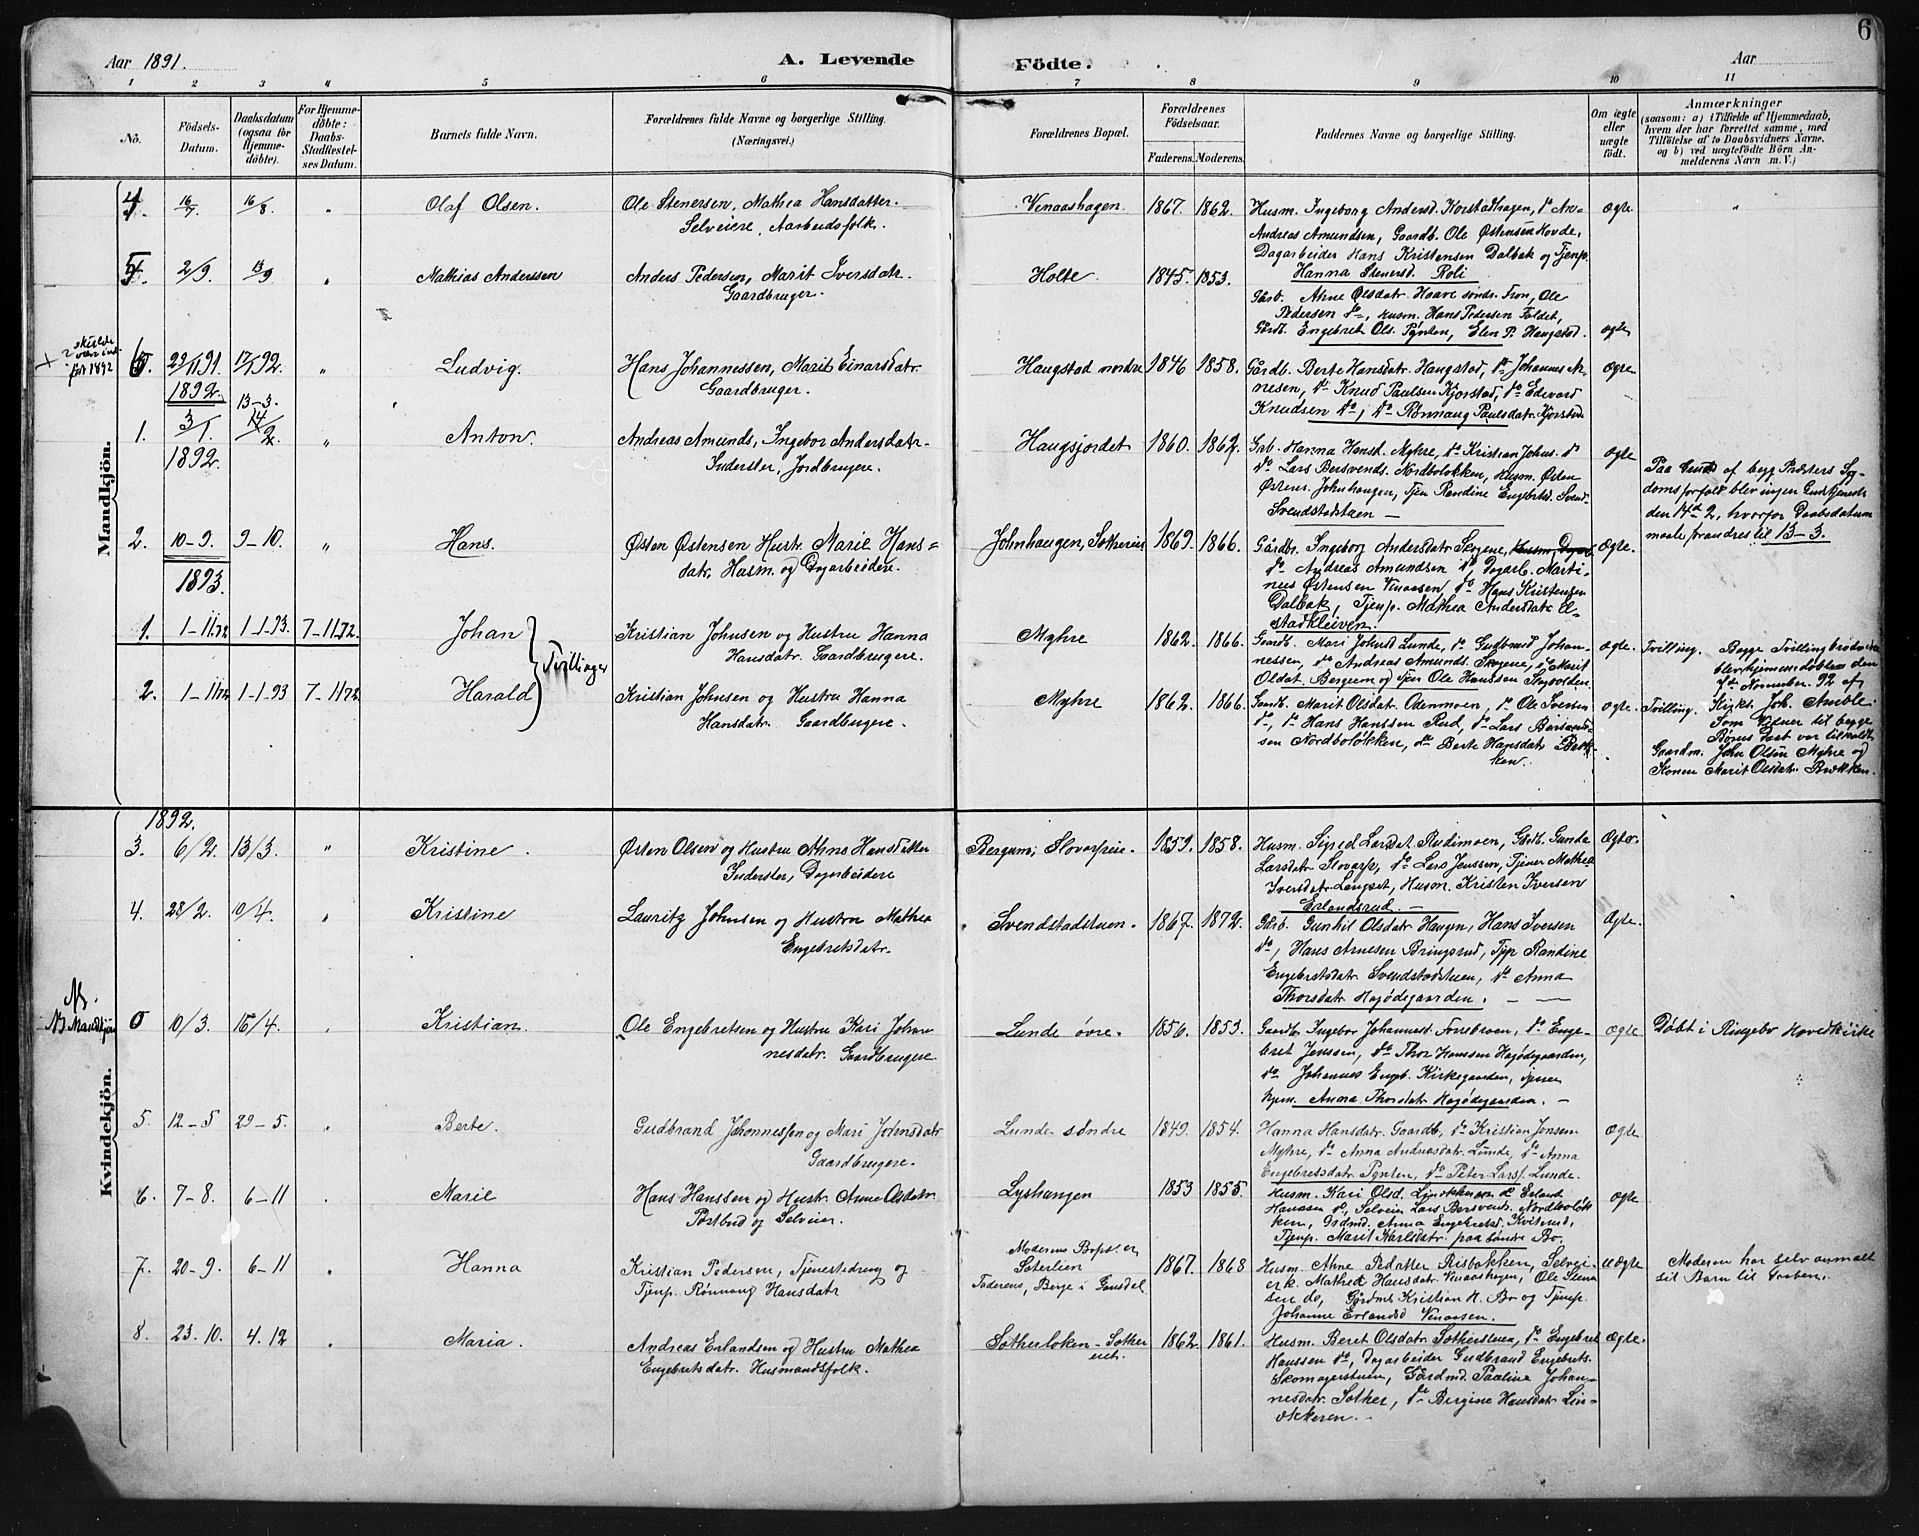 6
Aar 1891. A. Levende Födte. Aar
1 2 3 4 5 6 7 8 9 10 11
No. Födsels-Datum. Daabsdatum (ogsaa for Hjemmedöbte). For Hjemmedöbte: Daabs-Stadfæstelses Datum. Barnets fulde Navn. Forældrenes fulde Navne og borgerlige Stilling. (Næringsvei.) Forældrenes Bopæl. Forældrenes Födselsaar. Faderens. Moderens. Faddernes Navne og borgerlige Stilling. Om ægte eller uægte födt. Anmærkninger (saasom: a) i Tilfælde af Hjemmedaab, hvem der har forrettet samme, med Tilföielse af to Daabsvidners Navne. og b) ved uægtefödte Börn Anmelderens Navn m. V.)
Mandkjön.
4. 16/7. 16/8. " Olaf Olsen. Ole Stenersen, Mathea Hansdatter.
Selveiere, Aarbeidsfolk.
Venaashagen. 1867. 1862. Husm. Ingeborg Andersd. Korstadhagen, do
Andreas Amundsen, Gaardb. Ole Østensen Hovde,
Dagarbeider Hans Kristensen Dalbak og Tjenp.
Hanna Stenersd. Roli
ægte. "
5. 2/9. 13/9 " Mathias Anderssen Anders Pedersen, Marit Iversdatr.
Gaardbruger.
Holte. 1845. 1853. Gårb. Ahne Olsdatr. Haave søndr. Fron, Ole
Pedersen do, Husm. Hans Pedersen Foldet,
Gårdb. Engebret Ols. Pynten, Elen P. Haugstad.
ægte
+ skulde være indført 1892
6. 29/11 91. 17/1 92. " Ludvig. Hans Johannessen, Marit Einarsdatr.
Gaardbruger.
Haugstad nordre 1846 1858. Gårdb. Berte Hansdatr. Haugstad, do Johannes Arnesen,
do Knud Paulsen Kjorstad, do Edevard
Knudsen do, do Rønnaug Paulsdatr. Kjorstad
ægte
1892. 13-3.
1. 3/1. 14/2. " Anton. Andreas Amunds, Ingebor Andersdatr.
1892. Inderster, Jordbrugere.
Haugsjordet 1860. 1862. Grb. Hanna Hansd. Myhre, do Kristian Johns. do
do Lars Bersvends. Nordboløkken, Husm. Østen
Østens. Johnhaugen, Tjen Randine Engebrtd. Svend
Svendstadstuen —
ægte
Paa Grund af begge Præsters Sygdomsforfald
blev ingen Gudstjeneste
den 14de 2, hvorfor Daabsdatum
maatte forandres til 13-3.
2. 10-9. 9-10. " Hans. Østen Østensen Hustr. Marie Hansdatr,
Husm. og Dagarbeidere.
Johnhaugen, Sothereie 1869. 1866. Gårdbr. Ingeborg Andersdatr Skogene,
do Andreas Amundsen do, Dagarb. Martinus
Østensen Venaasen, do Hans Kristensen
Dalbak, Tjenp. Mathea Andersdatr Elstadkleiven.
ægte.
1893.
1. 1-11.92 1-1-93. 7-11.92. Johan Kristian Johnsen og Hustru Hanna
Hansdatr. Gaardbrugere.
Myhre 1862. 1866. Gaardb. Mari Johnsd Lunde, do Gudbrand Johannessen,
do Andreas Amunds. Skogene, do Marit
Olsdat. Bergum og tjen Ole Hanssen Skogvolden
ægte. Tvilling. Begge Tvillingbrødrene
blev hjemmedøbte den
7de November 92 af
Kirks. Joh. Amble.
Tvillinger
2. 1-11.92 1-1-93 7-11.92. Harald Kristian Johnsen og Hustru Hanna
Hansdatr. Gaardbrugere.
Myhre 1862. 1866. Gardb. Marit Olsdatr. Odenmoen, do Ole Iversen
do, do Hans Hanssen Rud, do Lars Bersvendsen
Nordboløkken, do Berte Hansdatr Bækken.
ægte. Tvilling.
Som Vidner til begge
Børns Daab var tilkaldt
Gaardm. John Olsen Myhre og
Konen Marit Olsdatr. Brækken.
Kvindekjön.
1892.
3. 6/2. 13/3. " Kristine. Østen Olsen og Hustru Ahne Hansdatter
Inderster, Dagarbeidere
Bergum, Slovarpeie. 1859. 1858. Husm. Sigrid Larsdat Rudimoen, Gårdb. Gunda
Larsdatr Slovarp, do Lars Jenssen, Tjener Mathea
Iversdatr Langset, Husm. Kristen Iversen
Erlandsrud. —
Ægte.
4. 28/2. 10/4. " Kristine Lauritz Johnsen og Hustru Mathea
Engebretsdatr.
Svendstadstuen. 1867. 1872. Gårb. Gunhil Olsdatr Haugen, Hans Iversen
do, Hans Arnesen Bringsrud, Tjp Randine
Engebretsdatr. Svendstadstuen, do Anna
Thorsdatr Hagødegaarden. — —
Ægte.
NB. Mandkjøn
5 10/3. 15/4. Kristian. Ole Engebretsen og Hustru Kari Johannesdatr.
Gaardbrugere
Lunde øvre. 1856. 1853. Gaardb. Ingebor Johannesd. Torrebroen, do Engebret
Jenssen, do Thor Hanssen Hagødegaarden,
do Johannes Engeb. Kirkegaarden, tjener
hjem. Anna Thorsdatr Hagødegaarden. —
ægte Døbt i Ringebo Hovedkirke
5. 12-5 29-5. " Berte. Gudbrand Johannessen og Mari Johnsdatr
Gaardbrugere.
Lunde søndre 1849. 1854. Hanna Hansdatr. Gaardb, do Kristian Jonsen
Myhre, do Anna Andreasdatr. Lunde, do Anna
Engebretsdatr Pynten, do Peter Larss. Lunde.
Ægte
6. 7-8. 6-11 Marie Hans Hanssen og Hustr Anne Olsdatr
Postbud og Selveier.
Lyshaugen 1853 1855. Husm. Kari Olsd. Linøkkeren do Erland
Hanssen do, Selveier Lars Bersvend. Nordboløkken,
Gårdmd. Anna Engebretsd. Kvilerud,
Tjenp. Marit Karlsdatr. paa søndre Bo.
ægte
7. 20-9. 6-11 Hanna Kristian Pedersen, Tjenestedreng og
Tjenp. Rønnaug Hansdatr
Moderens Bopæl er
Soterlien
Faderens, Berge i Gausdal
1867. 1868 Husm. Ahne Pedatter Risbakken, Selveierk.
Mathea Hansdatr Venaashagen, Ole Stenersen
do, Gårdmd Kristian H. Bo og Tjenp.
Johanne Erlandsd Venaasen.
uægte Moderen har selv anmeldt
sit Barn til Daaben.
8. 23. 10. 4. 12 Maria. Andreas Erlandsen og Hustru Mathea
Engebretsdatr. Husmandsfolk.
Sotherløken - Sothereiet.
1862. 1861. Husm. Beret Olsdatr Sotherstuen, do Engebret
Hanssen do, Dagarbeider Gudbrand Engebrets.
Skomagerstuen, Gårdmd. Pauline Johannesdatr.
Sother, do Bergine Hansdatr Linøkkeren. —
Ægte.